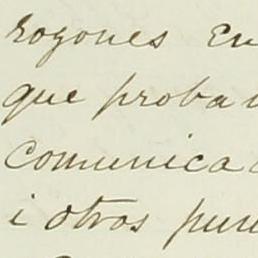 rozones en
que proba
comunica
i otros pun